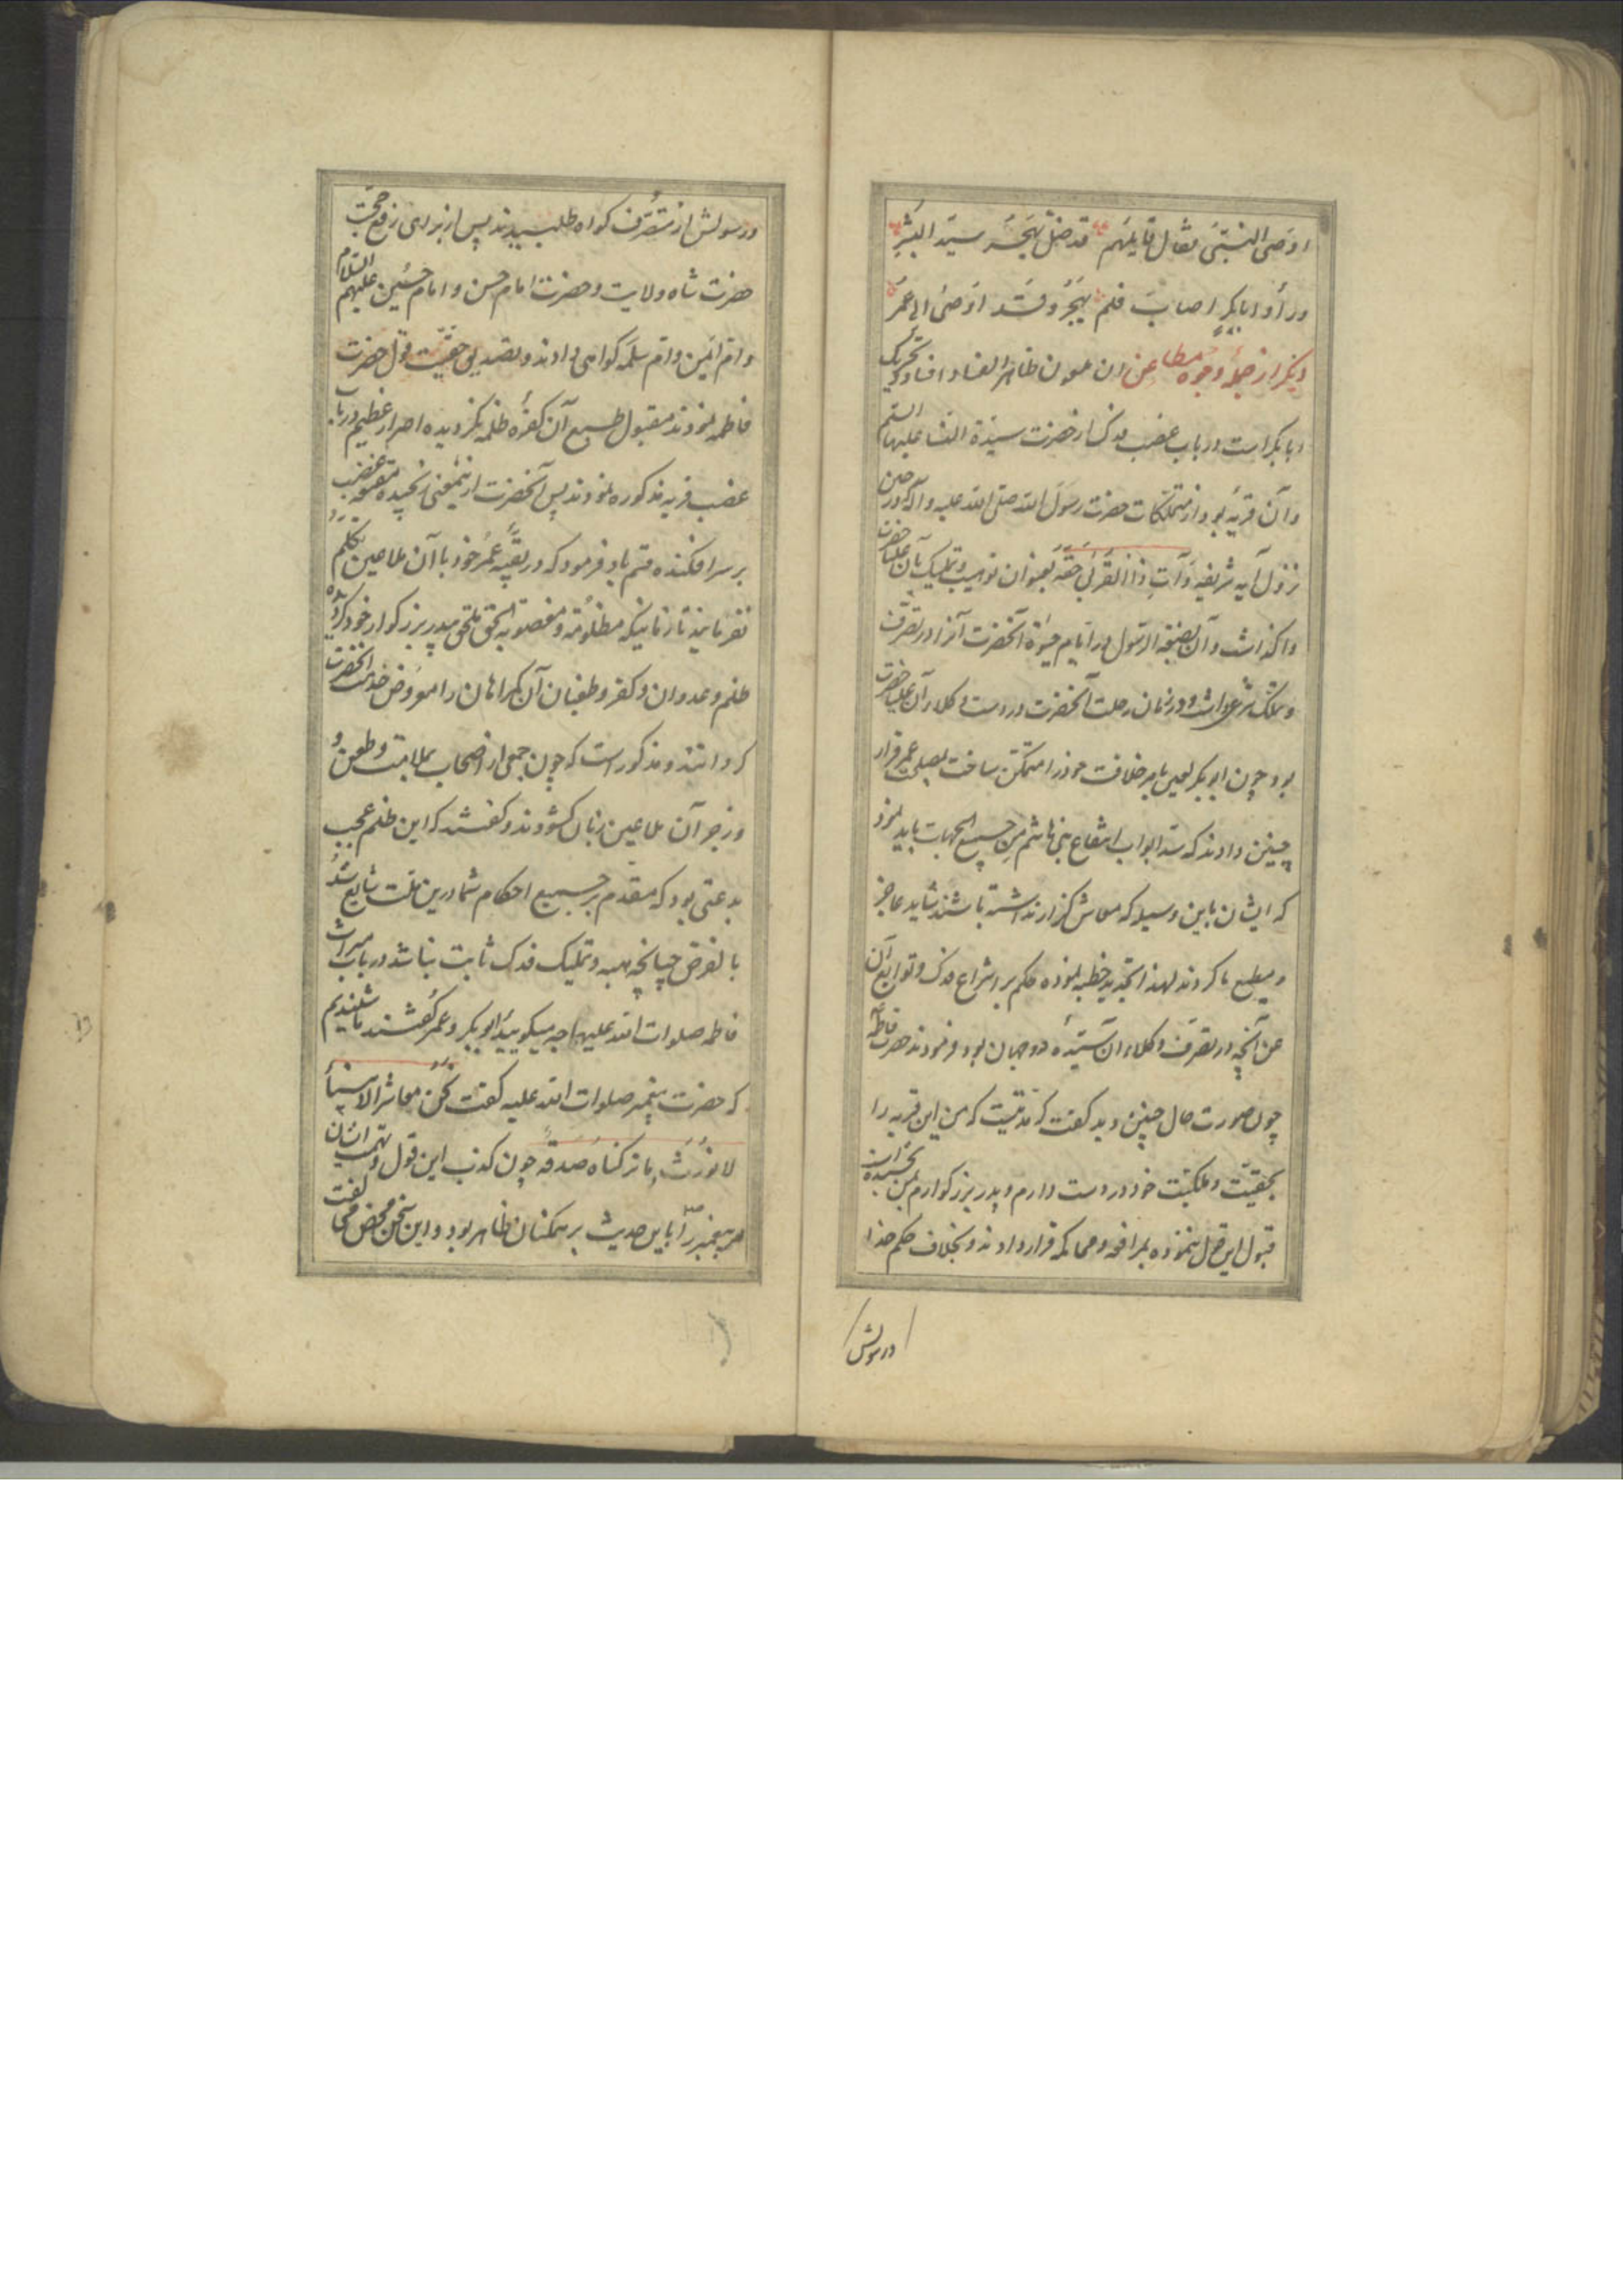 اوصی النبی فقال قایلهم قد ضل یهجر سید البشر
ورأوا ابابکر اصاب فلم یهجر وقد اوصی الی عمر
دیکر از جمله وجوه مطاعن ان ملعون ظاهر الفساد افساد و تحریک
ابابکر است در باب غصب فدک از حضرت سیدة النسا علیها السلم
و آن قریه بود از متملکات حضرت رسول الله صلی الله علیه و آله که در حین
نزول آیه شریفه وآت ذا القربی حقه بعنوان توهیب و تملیک بآن علیا حضرت
واکذاشت و آن بضعة الرسول در ایام حیوة آنحضرت آنرا در تصرف
و تملک شرعی داشت و در زمان رحلت آنحضرت در دست وکلاء آن علیا حضرت
بود چون ابو بکر لعین بامر خلافت خود را متمکن ساخت بصلاح عمر قرار
چنین دادند که سد ابواب انتفاع بنی هاشم من جمیع الجهات باید نمود
که ایشان باین وسیله که معاش کزار نداشته باشند شاید عاجز
و مطیع ما کردند لهذا تجدید خطبه نموده حکم بر انتزاع فدک و توابع آن
عن آنچه در تصرف وکلاء ان ستیده دو جهان بود فرمودند حضرت فاطمه
چون صورت حال چنین دید کفت که مدتیست که من این قریه را
بحقیت و ملکیت خود در دست دارم و پدر بزرکوارم بمن بخشیده ان
قبول این قول ننموده بمرافعه و محاکمه قرار دادند و بخلاف حکم خدا
ورسولش
ورسولش از متصرف کواه طلبیدند پس از برای رفع حجت
حضرت شاه ولایت و حضرت امام حسن و امام حسین علیهم السلام
و ام ایمن و ام سلمه کواهی دادند و تصدیق حقیت قول حضرت
فاطمه نمودند مقبول طبع آن کفرهٔ ظلمه نکردیده اصرار عظیم در باب
غصب قریه مذکوره نمودند پس آنحضرت ازینمعنی رنجیده مقنعه غضب
بر سر افکنده قسم یاد فرمود که در بقیه عمر خود با آن ملاعین تکلم
نفرمایند تا زمانیکه مظلومه و مغصوبه الحق ملحق بپدر بزرکوار خود کردیده
ظلم و عدوان و کفر و طغیان آن کمراهان را معروض خدمت آنحضرت
کردانند و مذکور است که چون جمعی از اصحاب بملامت و طعن و
و زجر آن ملاعین زبان کشودند و کفتند که این ظلم عجب
بدعتی بود که مقدم بر جمیع احکام شما درین ملت شایع شد
بالفرض چنانچه هبه و تملیک فدک ثابت نباشد در باب میراث
فاطمه صلوات الله علیها چه میکویید ابو بکر و عمر کفتند ما شنیدیم
که حضرت پیغمبر صلوات الله علیه کفت نحن معاشر الانبیاء
لا نورث ما ترکناه صدقة چون کذب این قول و تهمت ایشان
مر پیغمبر را باین حدیث بر همکنان ظاهر بود و این سخن محض مخالفت